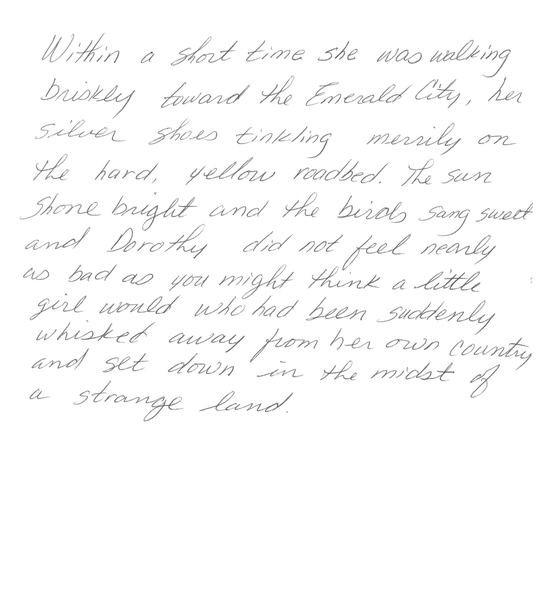 Within a short time she was walking
briskly toward the Emerald City, her
silver shoes tinkling merrily on
the hard, yellow roadbed. The sun
shone bright and the birds sang sweet
and Dorothy did not feel nearly
as bad as you might think a little
girl would who had been suddenly
whisked away from her own country
and set down in the midst of
a strange land.